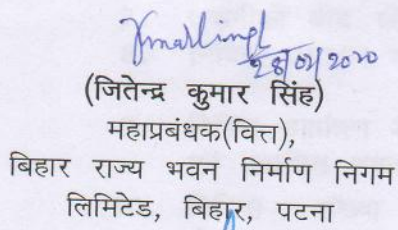 28/02/2020
(जितेन्द्र कुमार सिंह)
महाप्रबंधक(वित्त),
बिहार राज्य भवन निर्माण निगम
लिमिटेड, बिहार, पटना